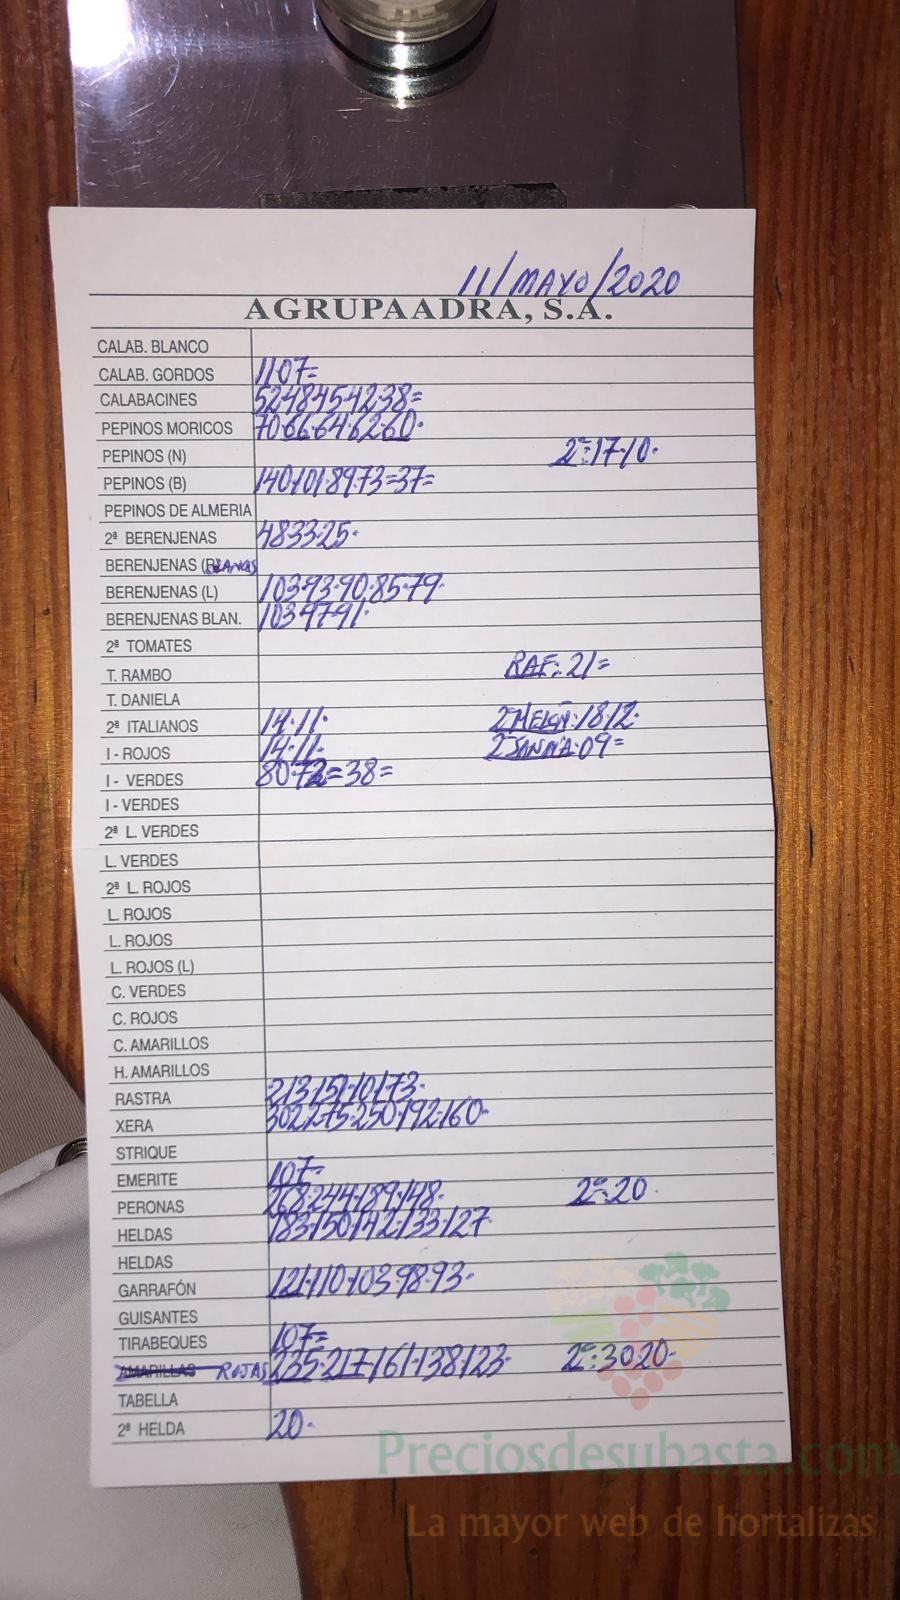 11/MAYO/2020
AGRUPAADRA, S.A.
CALAB. BLANCO
CALAB. GORDOS 11·07=
CALABACINES 52·48·45·42·38=
PEPINOS MORICOS 70·66·64·62·60·
PEPINOS (N) 2ª:17·10·
PEPINOS (B) 140·101·89·73=37=
PEPINOS DE ALMERIA
2ª BERENJENAS 48·33·25·
BERENJENAS
BERENJENAS (L) 103·93·90·85·79·
BERENJENAS BLAN. 103·97·91·
2ª TOMATES
T. RAMBO RAF: 21=
T. DANIELA
2ª ITALIANOS 14·11· 2ªMELON:18·12·
I - ROJOS 14·11· 09=
I - VERDES 80·72=38=
I - VERDES
2ª L. VERDES
L. VERDES
2ª L. ROJOS
L. ROJOS
L. ROJOS
L. ROJOS (L)
C. VERDES
C. ROJOS
C. AMARILLOS
H. AMARILLOS
RASTRA 213·151·101·73·
XERA 302·275·250·192·160·
STRIQUE
EMERITE 107=
PERONAS 268·244·189·148· 2ª:20·
HELDAS 183·150·142·133·127
HELDAS
GARRAFÓN 121·110·103·98·93·
GUISANTES
TIRABEQUES 107=
AMARILLAS ROJAS 235·217·161·138·123· 2ª:30·20·
TABELLA
2ª HELDA 20·
Preciosdesubasta.com
La mayor web de hortalizas